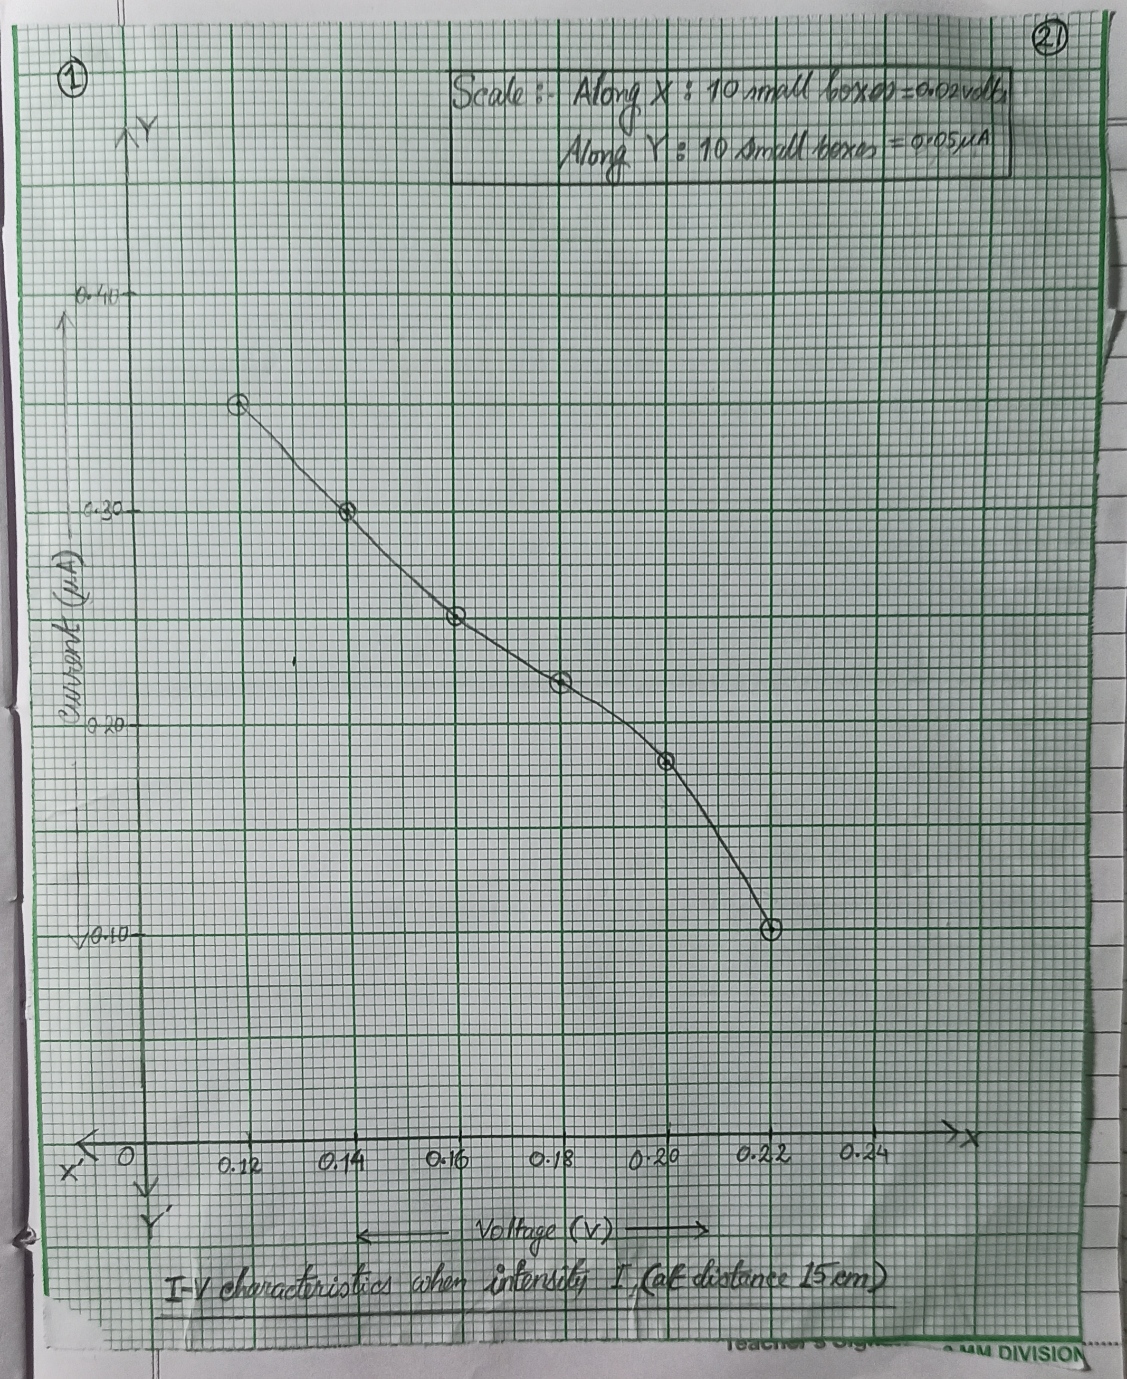 1
21
Scale :- Along X : 10 small boxes = 0.02 volts
Along Y : 10 small boxes = 0.05 μA
Y
0.40
0.30
current (μA)
0.20
0.10
X' 0 0.12 0.14 0.16 0.18 0.20 0.22 0.24 X
Y'
Voltage (V)
I-V characteristics when intensity I, (at distance 15 cm)
MM DIVISION